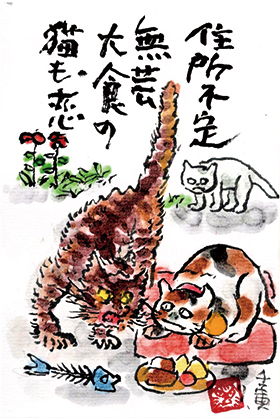 住所不定
無芸
大食の
猫も恋